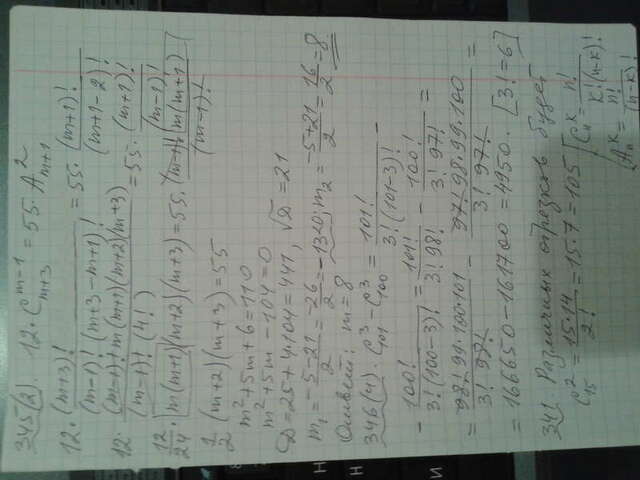 345(2). 12·C_{m+3}^{m-1} = 55·A_{m+1}^{2}
12·(m+3)! / ((m-1)!(m+3-m+1)!) = 55·(m+1)! / (m+1-2)!
12·(m-1)! m(m+1)(m+2)(m+3) / ((m-1)!(4!)) = 55·(m+1)! / (m-1)!
12/24·m(m+1)(m+2)(m+3) = 55·(m-1)! m(m+1) / (m-1)!
1/2 (m+2)(m+3) = 55
m²+5m+6=110
m²+5m-104=0
D=25+4·104=441, √D=21
m₁ = (-5-21)/2 = -26/2 = -13<0; m₂ = (-5+21)/2 = 16/2 = 8
Ответ: m=8
346(1). C_{101}^{3} - C_{100}^{3} = 101! / (3!(101-3)!) -
- 100! / (3!(100-3)!) = 101! / (3! 98!) - 100! / (3! 97!) =
= 98!·99·100·101 / (3! 98!) - 97!·98·99·100 / (3! 97!) =
= 166650-161700 = 4950. [3!=6]
341. Различных отрезков будет
C_{15}^{2} = 15·14 / 2! = 15·7 = 105 [C_n^k = n! / (k!(n-k)!)
[A_n^k = n! / (n-k)!
Н
И